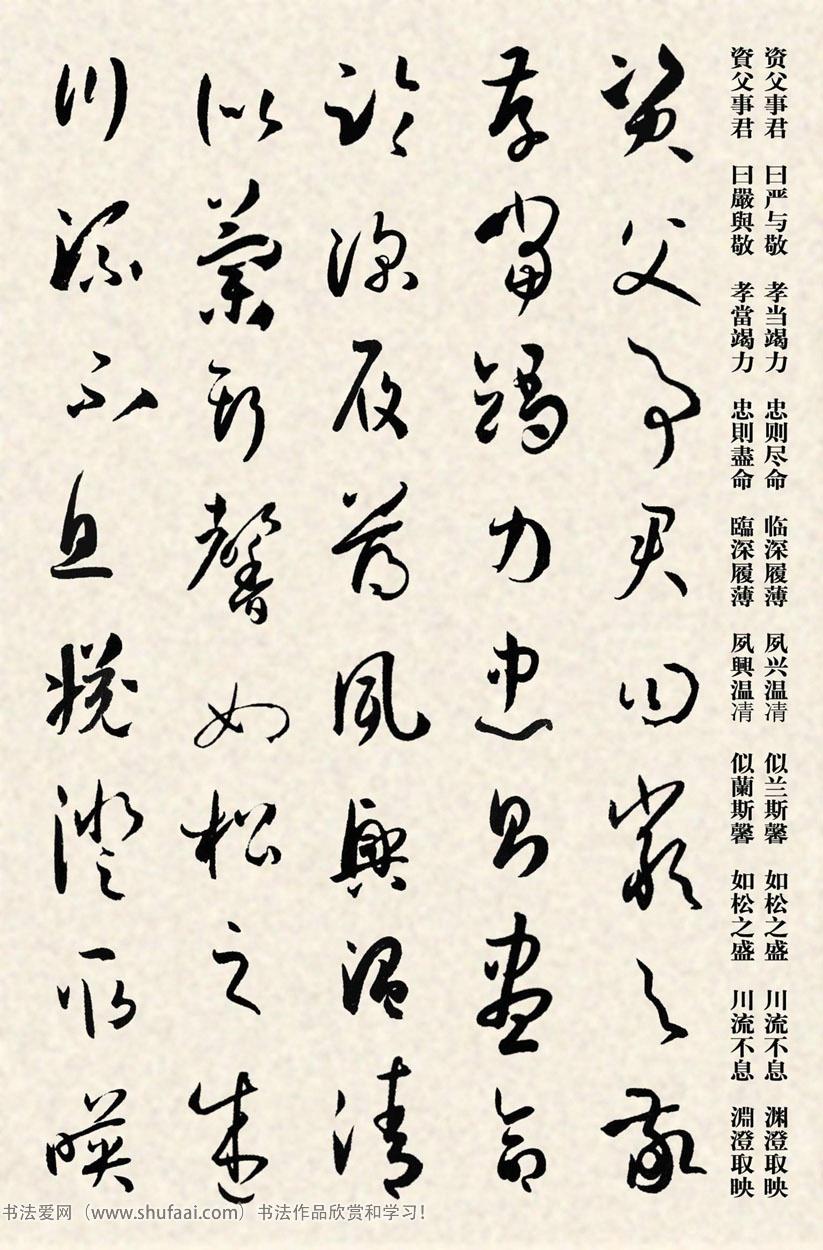 资父事君 曰严与敬 孝当竭力 忠则尽命 临深履薄 夙兴温凊 似兰斯馨 如松之盛 川流不息 渊澄取映
資父事君 曰嚴與敬 孝當竭力 忠則盡命 臨深履薄 夙興温凊 似蘭斯馨 如松之盛 川流不息 淵澄取映
資父事君曰嚴與敬
孝當竭力忠則盡命
臨深履薄夙興温清
似蘭斯馨如松之盛
川流不息淵澄取映
书法爱网（www.shufaai.com）书法作品欣赏和学习！